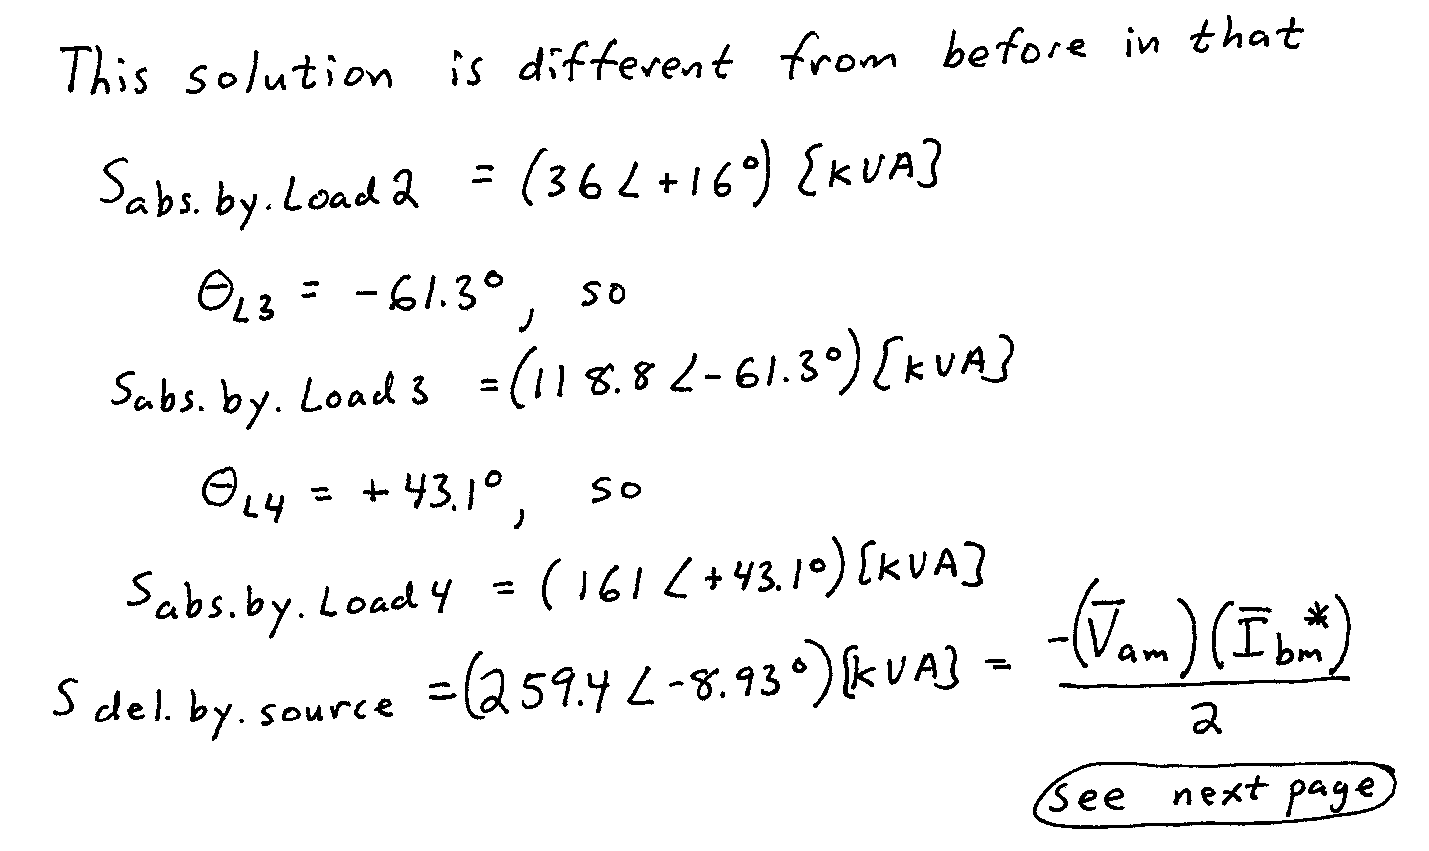 This solution is different from before in that
S_abs.by.Load2 = (36∠+16°) [kVA]
θ_L3 = -61.3°, so
S_abs.by.Load3 = (118.8∠-61.3°) [kVA]
θ_L4 = +43.1°, so
S_abs.by.Load4 = (161∠+43.1°) [kVA]
S_del.by.source = (259.4∠-8.93°) [kVA] = -(V̅_am)(I̅_bm*)/2
see next page